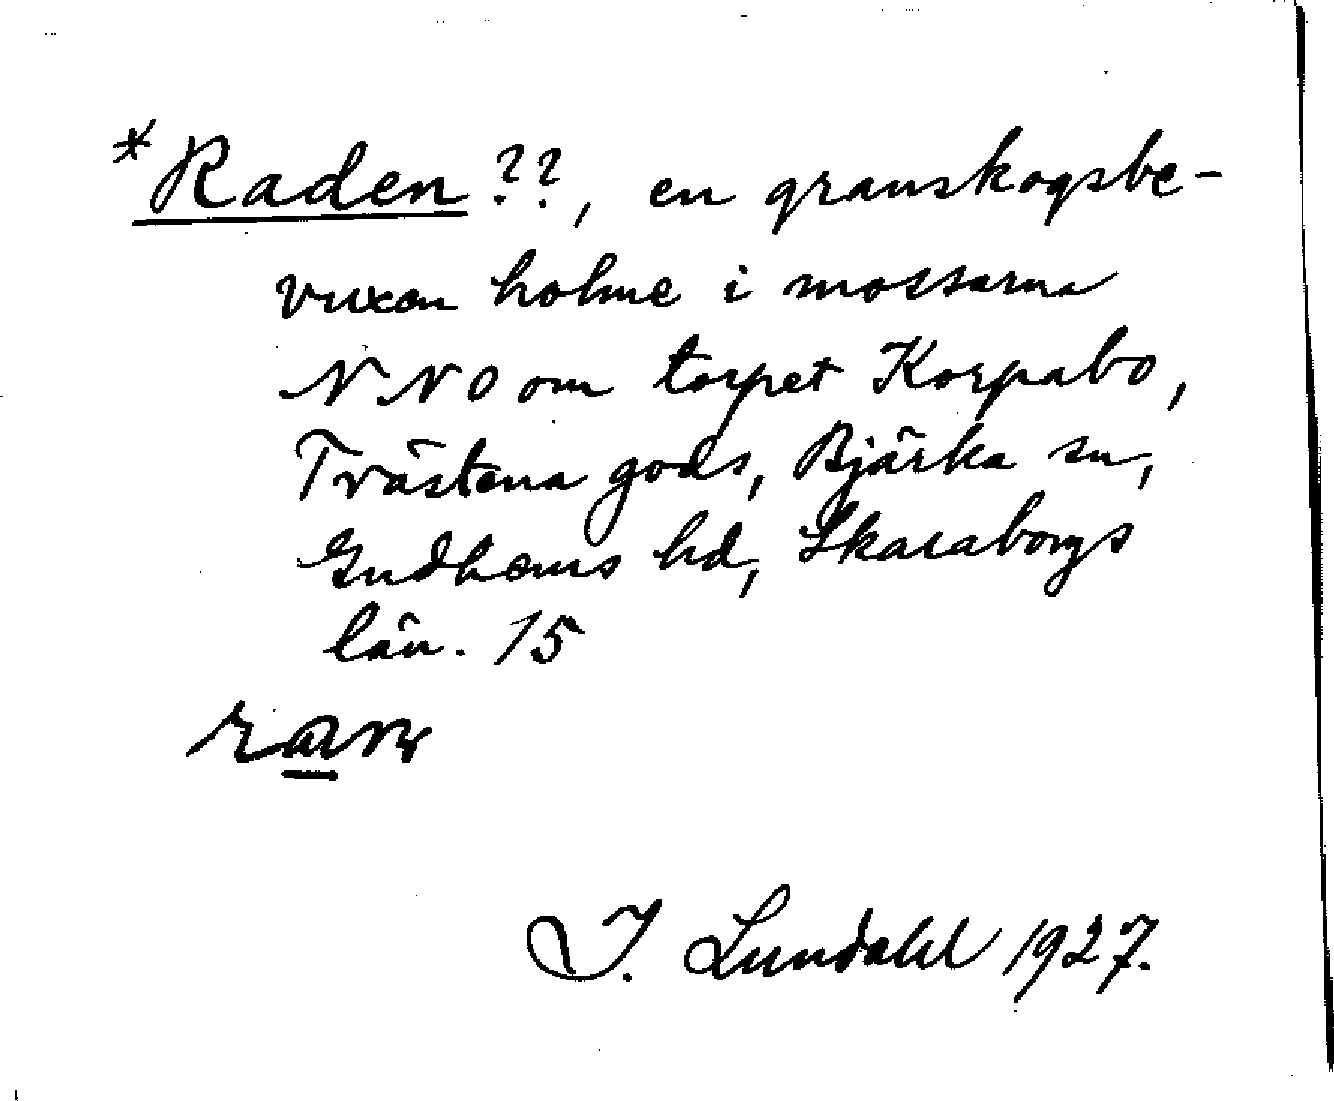 *Raden ??, en granskogsbe-
vuxen holme i mossarna
NNO om torpet Korpabo,
Trästena gods, Bjärka sn,
Gudhems hd, Skaraborgs
län. 15
I. Lundahl 1927.